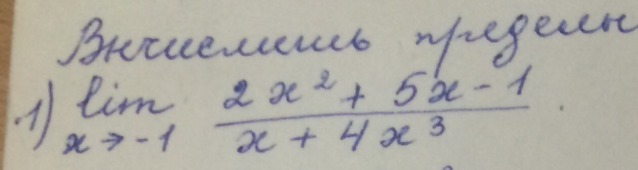 Вычислить пределы
1) lim 2x² + 5x - 1
x→-1 x + 4x³